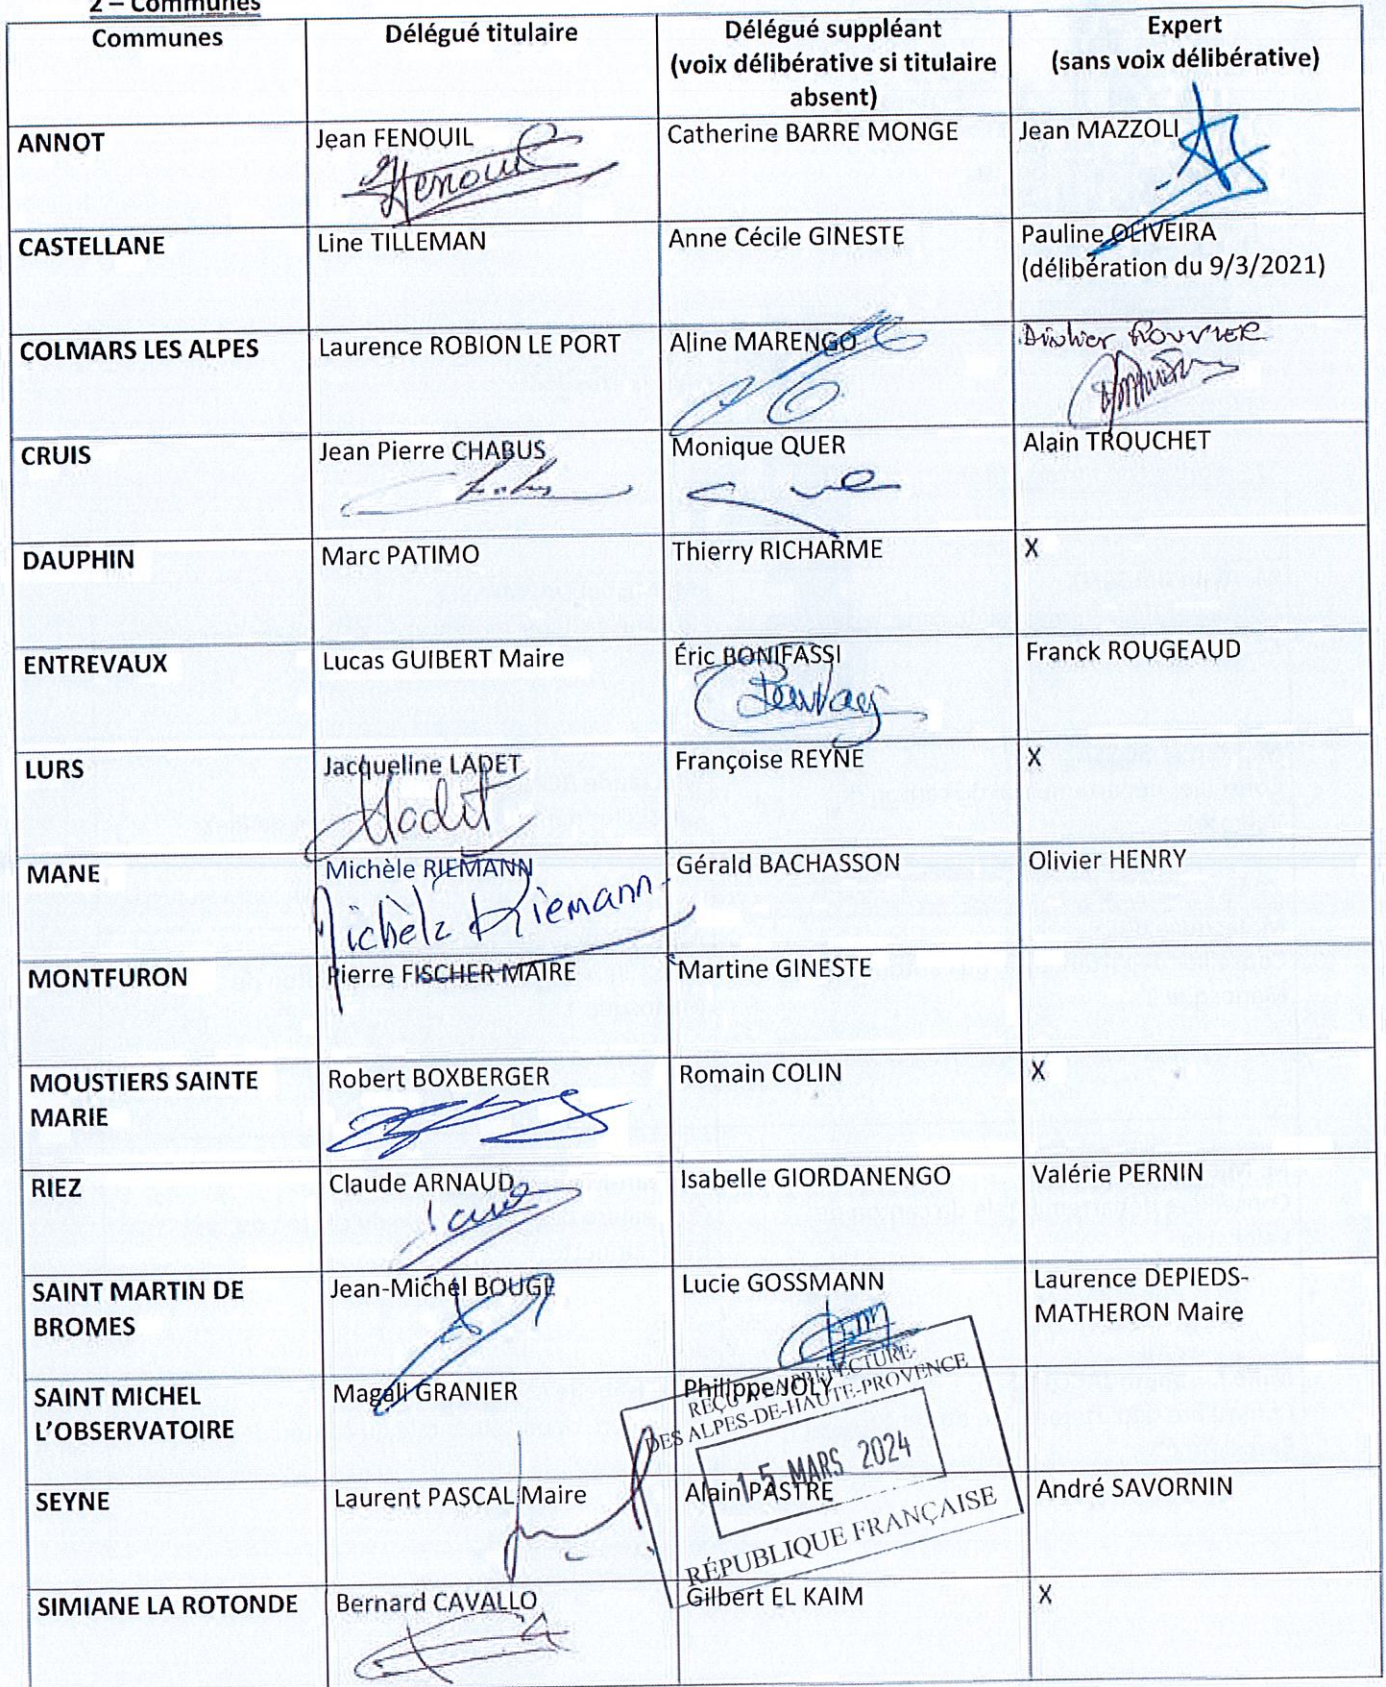 2 – Communes
Communes
Délégué titulaire
Délégué suppléant
(voix délibérative si titulaire
absent)
Expert
(sans voix délibérative)
ANNOT
Jean FENOUIL
Fenouil
Catherine BARRE MONGE
Jean MAZZOLI
CASTELLANE
Line TILLEMAN
Anne Cécile GINESTE
Pauline OLIVEIRA
(délibération du 9/3/2021)
COLMARS LES ALPES
Laurence ROBION LE PORT
Aline MARENGO
ROUVIER
CRUIS
Jean Pierre CHABUS
Monique QUER
Alain TROUCHET
DAUPHIN
Marc PATIMO
Thierry RICHARME
X
ENTREVAUX
Lucas GUIBERT Maire
Éric BONIFASSI
Franck ROUGEAUD
LURS
Jacqueline LADET
Françoise REYNE
X
MANE
Michèle RIEMANN
Michèle Riemann
Gérald BACHASSON
Olivier HENRY
MONTFURON
Pierre FISCHER MAIRE
Martine GINESTE
MOUSTIERS SAINTE
MARIE
Robert BOXBERGER
Romain COLIN
X
RIEZ
Claude ARNAUD
Isabelle GIORDANENGO
Valérie PERNIN
SAINT MARTIN DE
BROMES
Jean-Michel BOUGE
Lucie GOSSMANN
Laurence DEPIEDS-
MATHERON Maire
SAINT MICHEL
L'OBSERVATOIRE
Magali GRANIER
Philippe JOLY
REÇU A LA PRÉFECTURE
DES ALPES-DE-HAUTE-PROVENCE
15 MARS 2024
RÉPUBLIQUE FRANÇAISE
SEYNE
Laurent PASCAL Maire
Alain PASTRE
André SAVORNIN
SIMIANE LA ROTONDE
Bernard CAVALLO
Gilbert EL KAIM
X